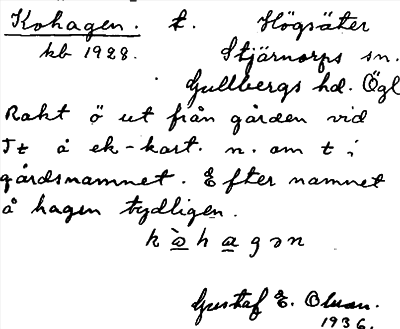 Kohagen. t. Högsäter
kb 1928. Stjärnorps sn.
Gullbergs hd. Ögl
Rakt ö ut från gården vid
Tt å ek-kart. n. om t i
gårdsnamnet. Efter namnet
å hagen tydligen.
k ò h a g ə n
Gustaf E. Olsson.
1936.